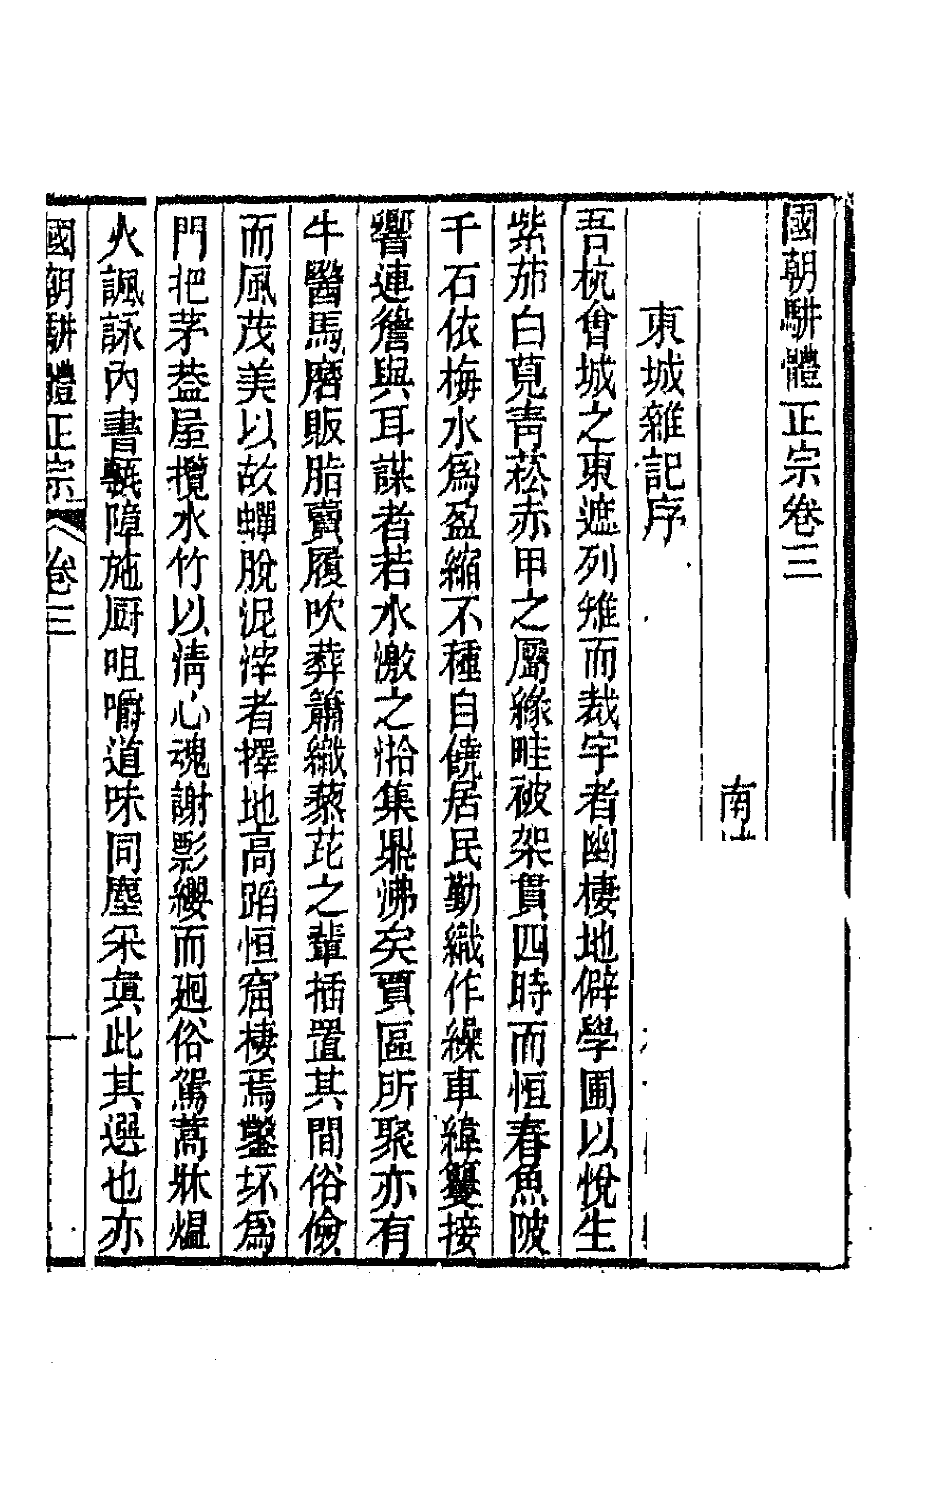 國朝駢體正宗卷三
南
東城雜記序
吾杭會城之東遮列雉而裁宇者幽棲地僻學圃以悅生
紫茄白莧靑菘赤甲之屬緣畦被架貫四時而恒春魚陂
千石依梅水爲盈縮不種自饒居民勤織作繰車緯籆接
響連簷與耳謀者若水激之湁集鼎沸矣賈區所聚亦有
牛醫馬磨販脂賣履吹葬簫織蔾芘之輩插置其間俗儉
而風茂美以故蟬脫泥滓者擇地高蹈恒窟棲焉鑿坏爲
門把茅葢屋攬水竹以淸心魂謝影纓而廻俗駕蒿牀熅
火諷詠內書甎障施厨咀嚼道味同塵采眞此其選也亦
國朝駢體正宗 卷三 一